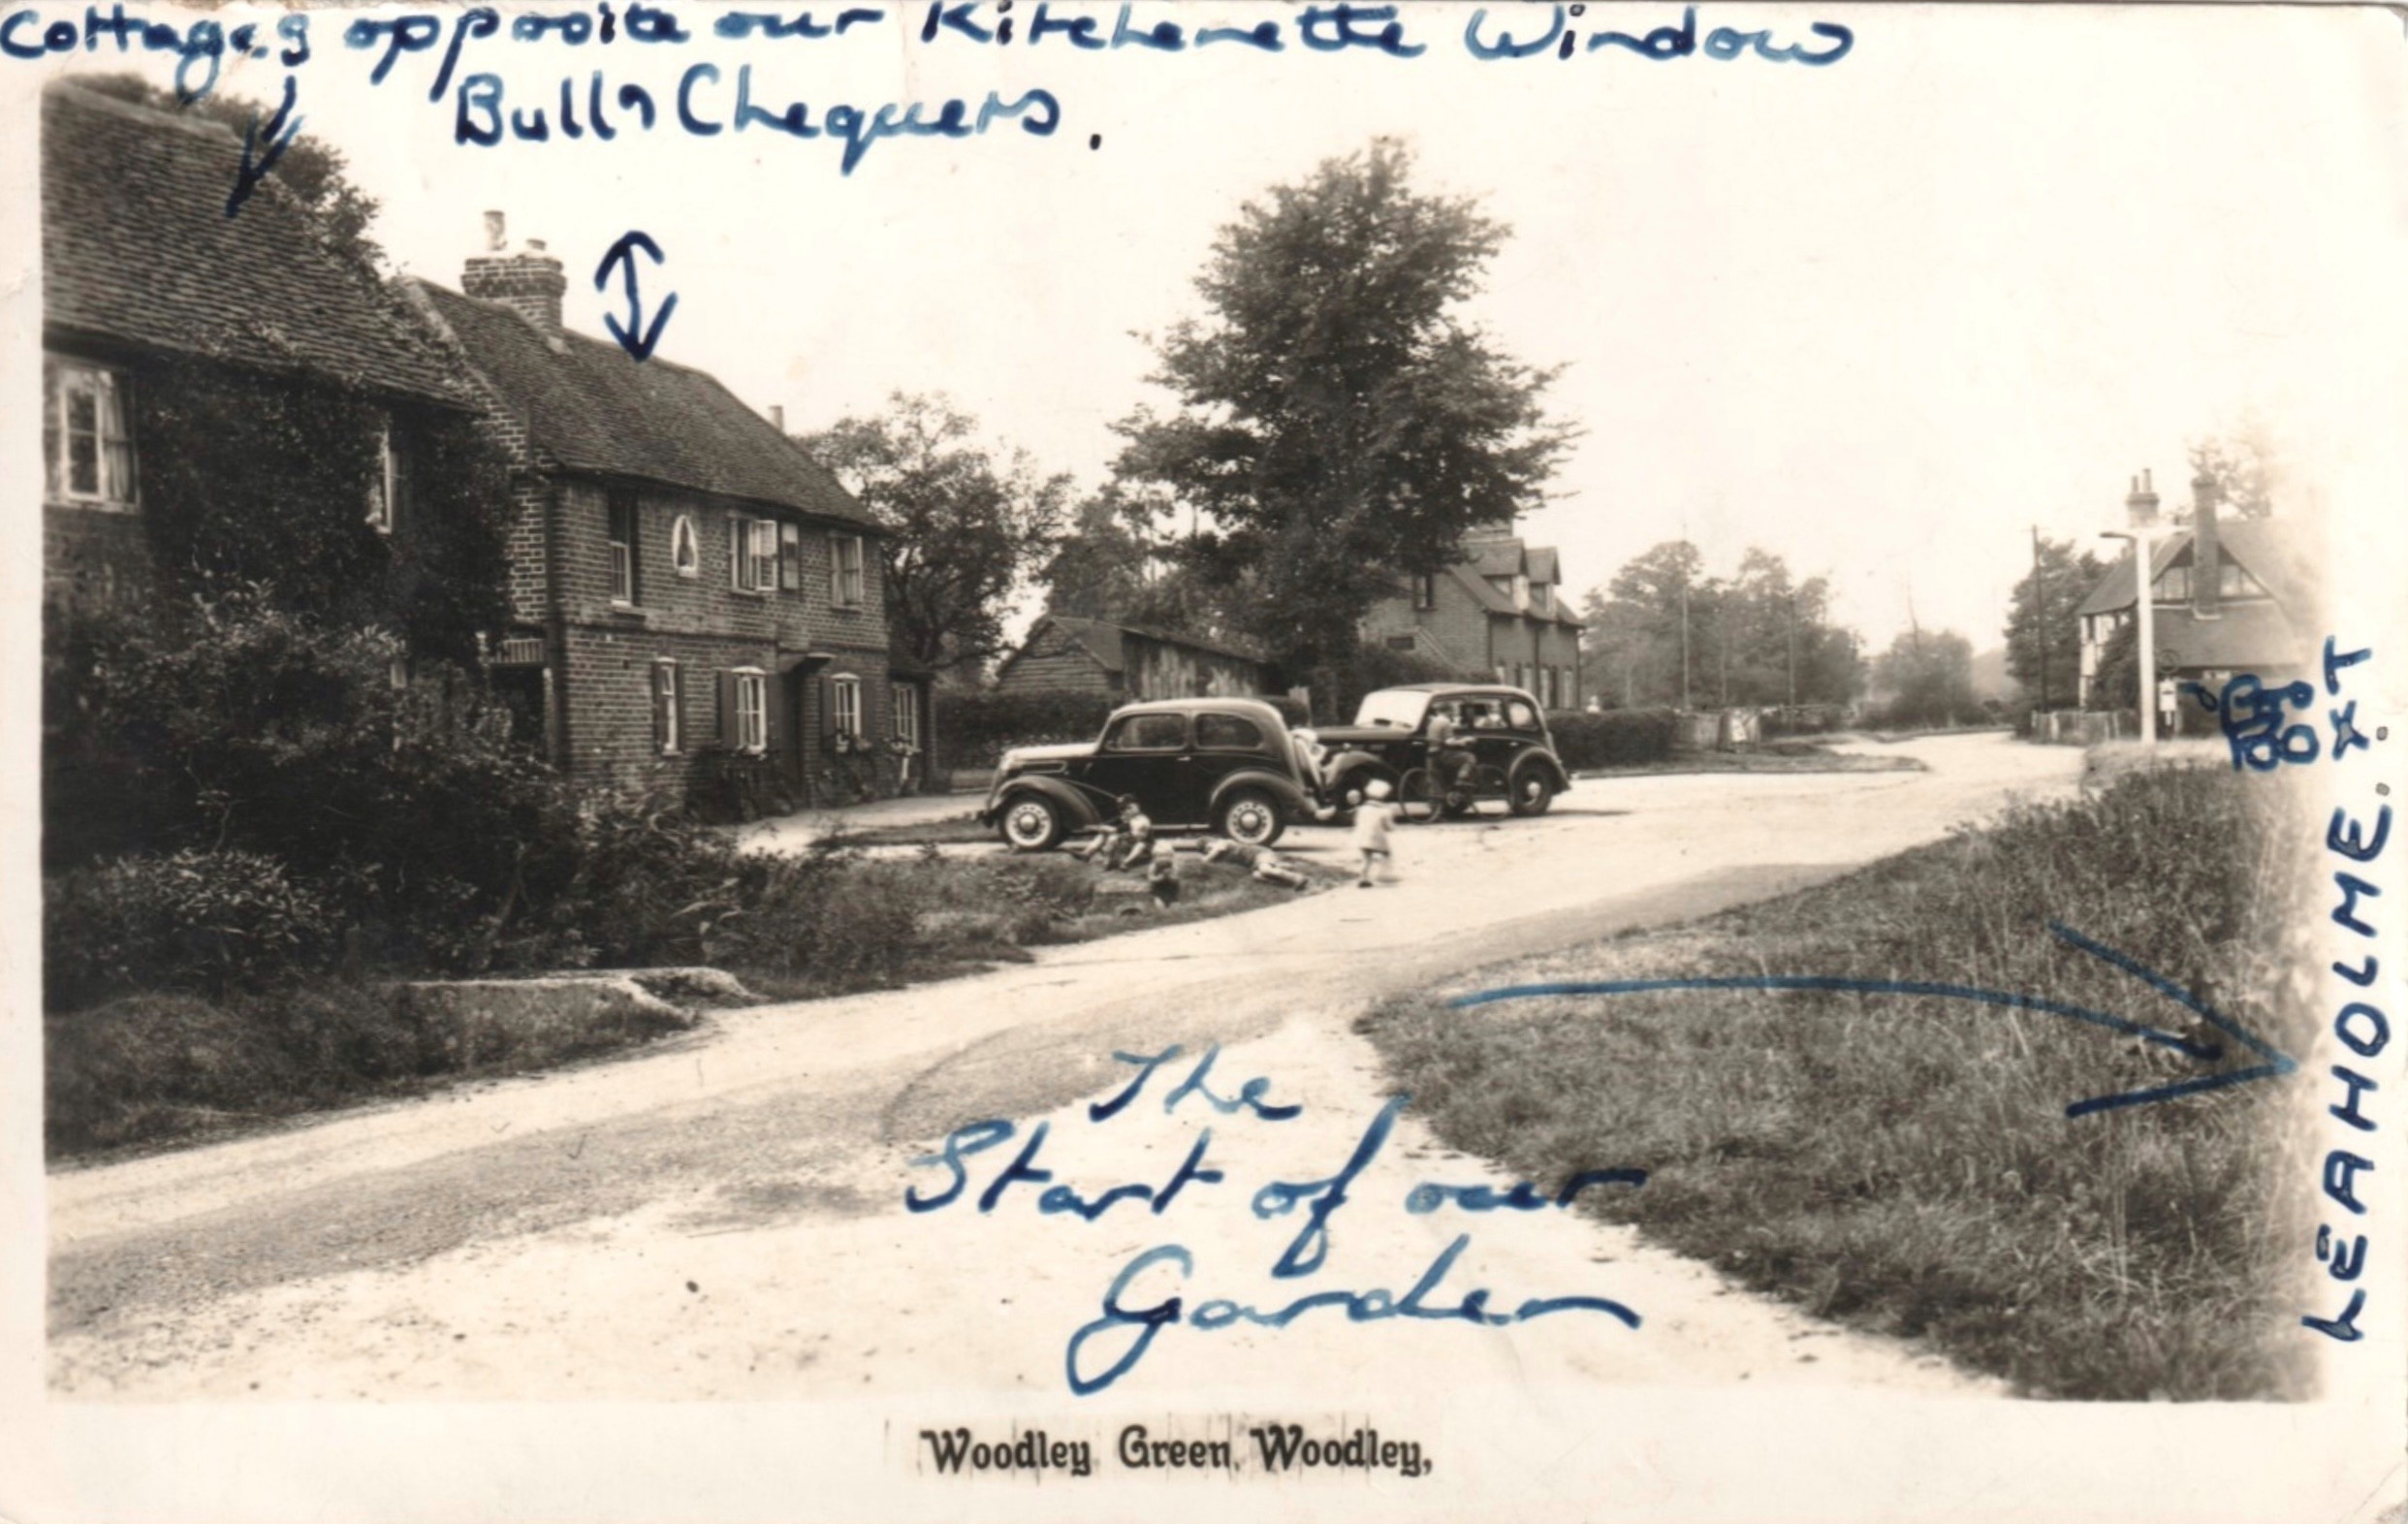 Cottages opposite our Kitchenette Window
Bulls Chequers.
The
Start of our
Garden
LEAHOLME.
Woodley Green, Woodley,